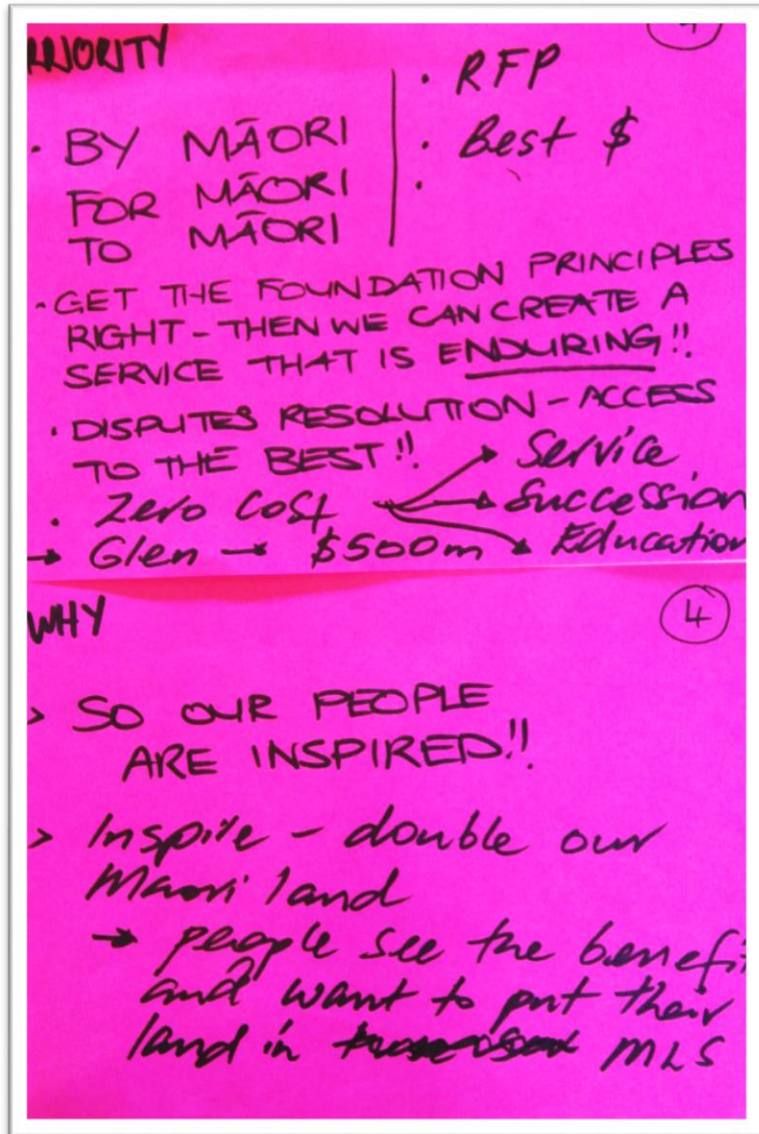 PRIORITY
4
• BY MĀORI
FOR MĀORI
TO MĀORI
• RFP
• Best $
•
• GET THE FOUNDATION PRINCIPLES
RIGHT - THEN WE CAN CREATE A
SERVICE THAT IS ENDURING!!
• DISPUTES RESOLUTION - ACCESS
TO THE BEST!!
• Zero cost → Service
→ Succession
→ Education
→ Glen → $500m
WHY
4
> SO OUR PEOPLE
ARE INSPIRED!!
> Inspire - double our
Maori land
→ people see the benefi
and want to put their
land in MLS